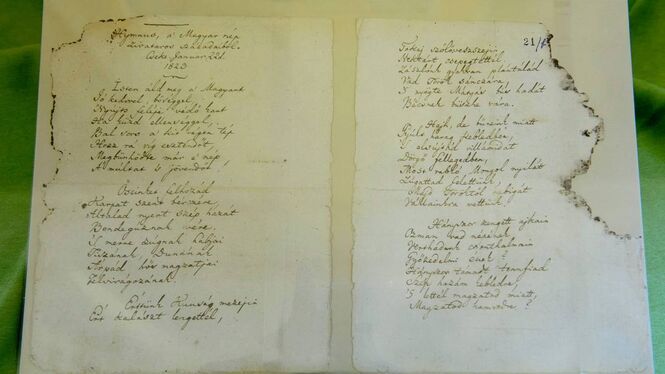 Hymnus, a Magyar nép
zivataros századaiból.
Cseke Januar. 22d.
1823
Isten áld meg a Magyart
Jó kedvvel, bőséggel,
Nyujts feléje védő kart
Ha küzd ellenséggel,
Bal sors a kit régen tép
Hozz rá víg esztendőt,
Megbünhödte már e' nép
A' multat 's jövendőt!
Őseinket felhozád
Kárpát szent bérczére,
Általad nyert szép hazát
Bendegúznak vére.
'S merre zúgnak habjai
Tiszának, Dunának
Árpád hős magzatjai
Felvirágozának.
Értünk Kunság mezején
Ért kalászt lengettél,
21/
Tokaj szőlővesszejin
Nektárt csepegtettél
Zászlónk gyakran plántálád
Vad Török sáncára,
'S nyögte Mátyás bús hadát
Bécsnek büszke vára.
Hajh, de bűneink miatt
Gyúlt harag kebledben,
'S elsujtád villámidat
Dörgő fellegedben,
Most rabló Mongol nyilát
Zúgattad felettünk,
Majd Töröktől rabigát
Vállainkra vettünk.
Hányszor zengett ajkain
Ozman vad népének
Vert hadunk csonthalmain
Győzedelmi ének?
Hányszor támadt tennfiad
Szép hazám kebledre,
'S lettél magzatod miatt,
Magzatod hamvedre?